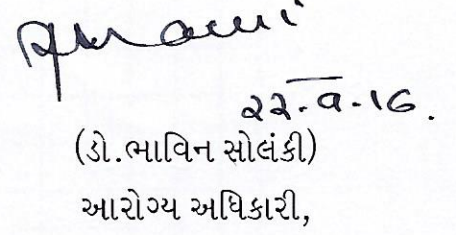 ૨૨-૧-16.
(ડો.ભાવિન સોલંકી)
આરોગ્ય અધિકારી,